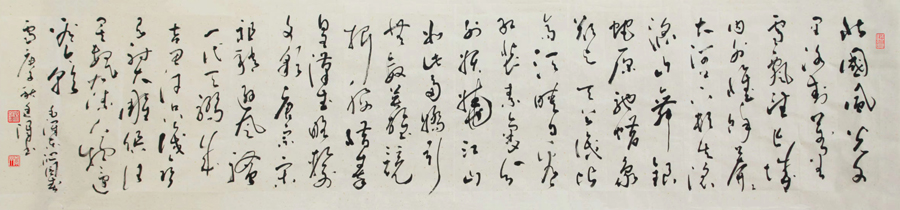 北國風光千
里冰封萬里
雪飄望長城
內外惟餘莽莽
大河上下頓失滔
滔山舞銀
蛇原馳蠟象
欲與天公試比
高須晴日看
紅裝素裹分
外妖嬈江山
如此多嬌引
無數英雄競
折腰惜秦
皇漢武略輸
文采唐宗宋
祖稍遜風騷
一代天驕成
吉思汗只識彎
弓射大雕俱往
矣數風流人物還
看今朝 毛澤東沁園春
雪 庚子秋 書